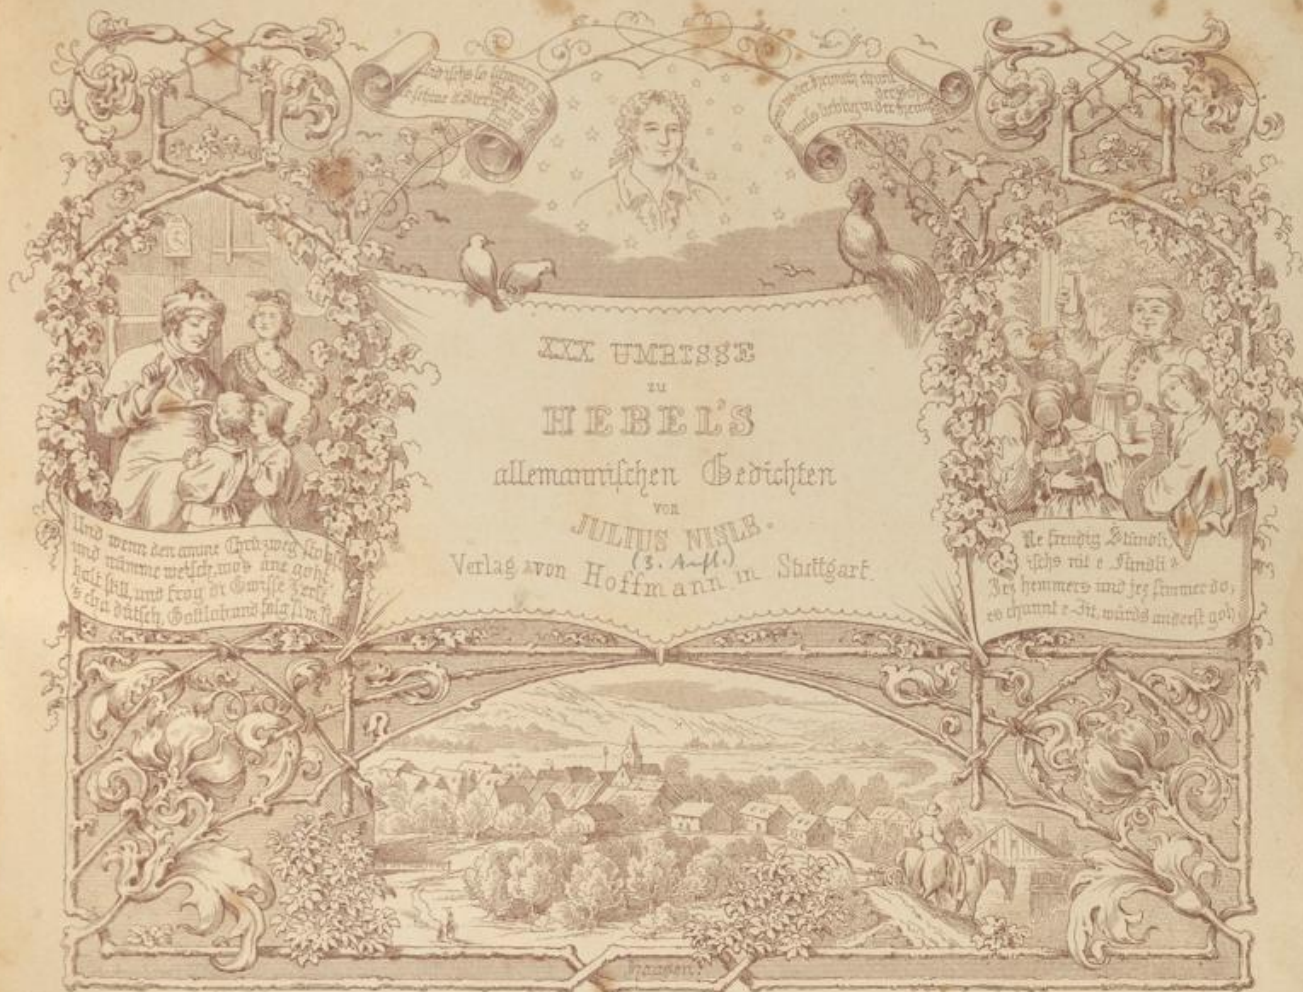 isch's so schwarz
schine d'Sternli
XXX UMRISSE
zu
HEBEL'S
allemannischen Gedichten
von
JULIUS NISLE.
(3. Aufl.)
Verlag von Hoffmann in Stuttgart.
Und wenn de amme Chrüzweg stohsch
und nümme weisch, wo's ane goht,
halt still, und frog di Gwisse z'erst,
's cha dütsch, Gottlob, und folg si'm
Ne freudig Stündli,
isch's nit e Fündli?
Jez hemmers und jez simmer do,
es chunnt e Zit, würds anderst goh.